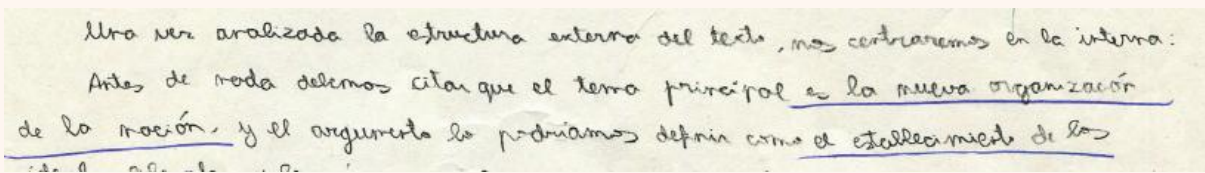 Una vez analizada la estructura externa del texto, nos centraremos en la interna:
Antes de nada debemos citar que el tema principal es la nueva organización
de la nación, y el argumento lo podríamos definir como el establecimiento de los